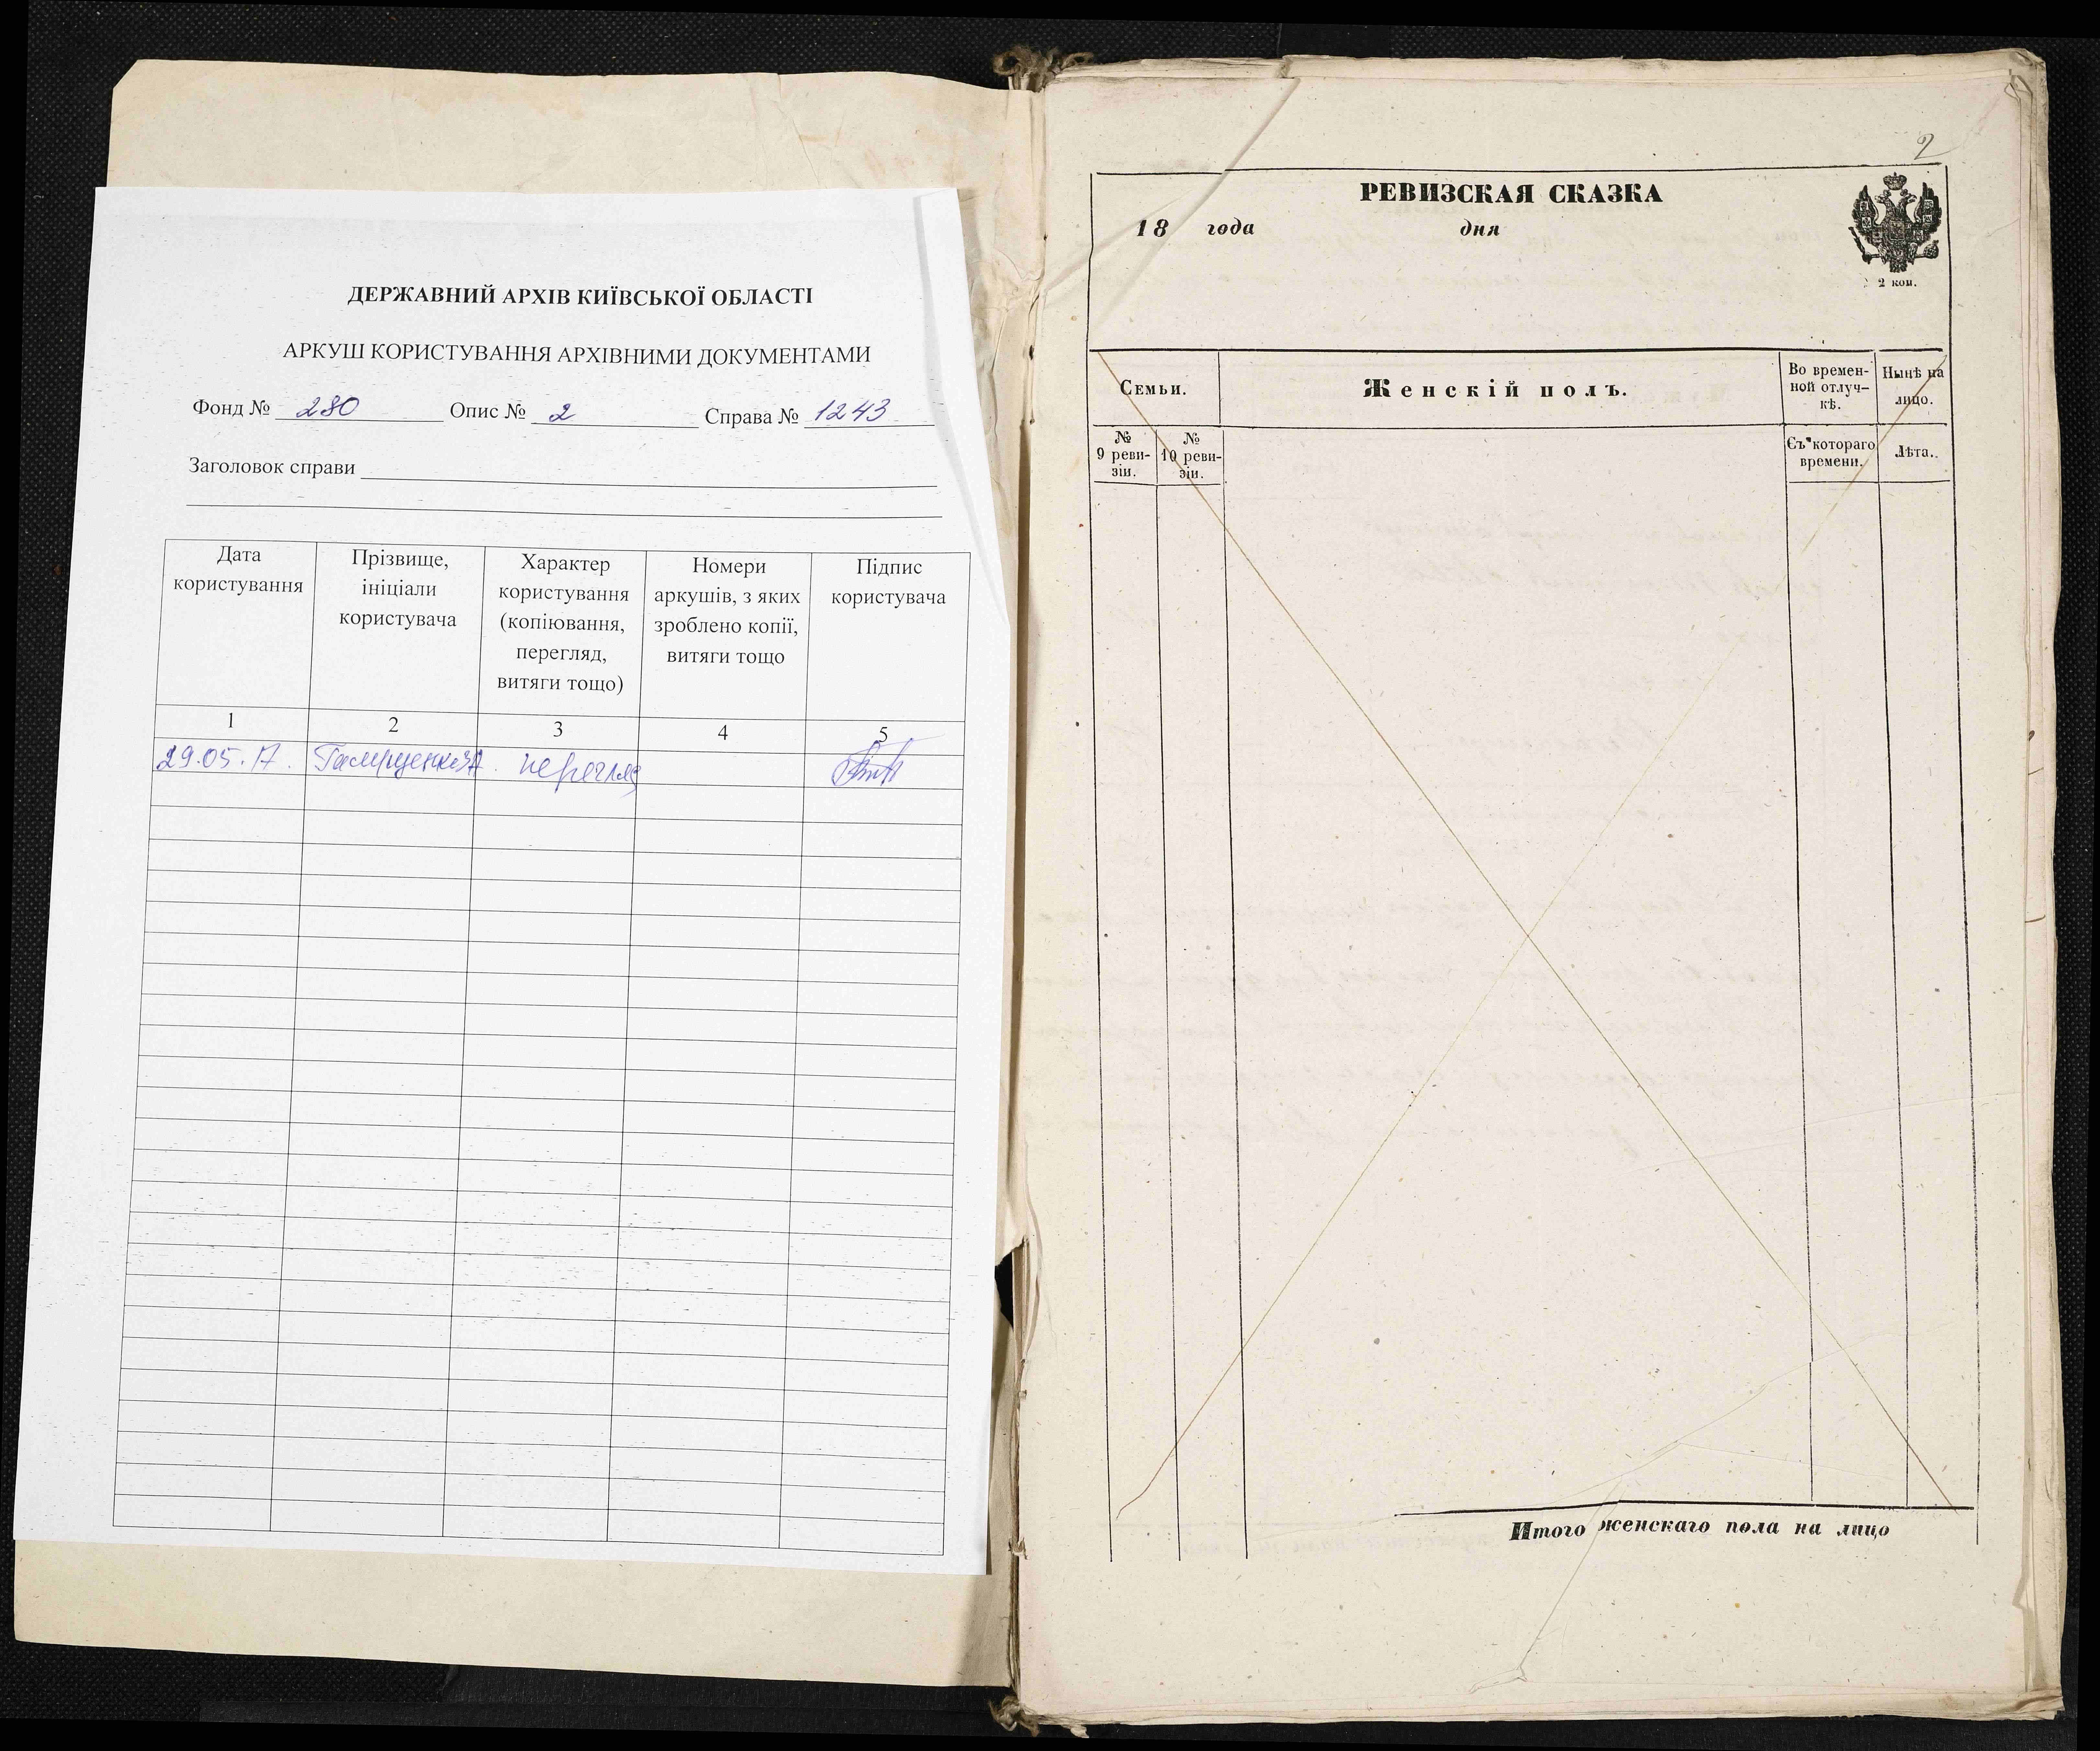 ДЕРЖАВНИЙ АРХІВ КИЇВСЬКОЇ ОБЛАСТІ
АРКУШ КОРИСТУВАННЯ АРХІВНИМИ ДОКУМЕНТАМИ
Фонд № 280 Опис № 2 Справа № 1243
Заголовок справи
Дата
користування
Прізвище,
ініціали
користувача
Характер
користування
(копіювання,
перегляд,
витяги тощо)
Номери
аркушів, з яких
зроблено копії,
витяги тощо
Підпис
користувача
1 2 3 4 5
29.05.17. перегляд
2
РЕВИЗСКАЯ СКАЗКА
18 года дня
2 коп.
Семьи.
Женскій полъ.
Во времен-
ной отлуч-
кѣ.
Нынѣ на
лицо.
№
9 реви-
зіи.
№
10 реви-
зіи.
Съ котораго
времени.
Лѣта.
Итого женскаго пола на лицо